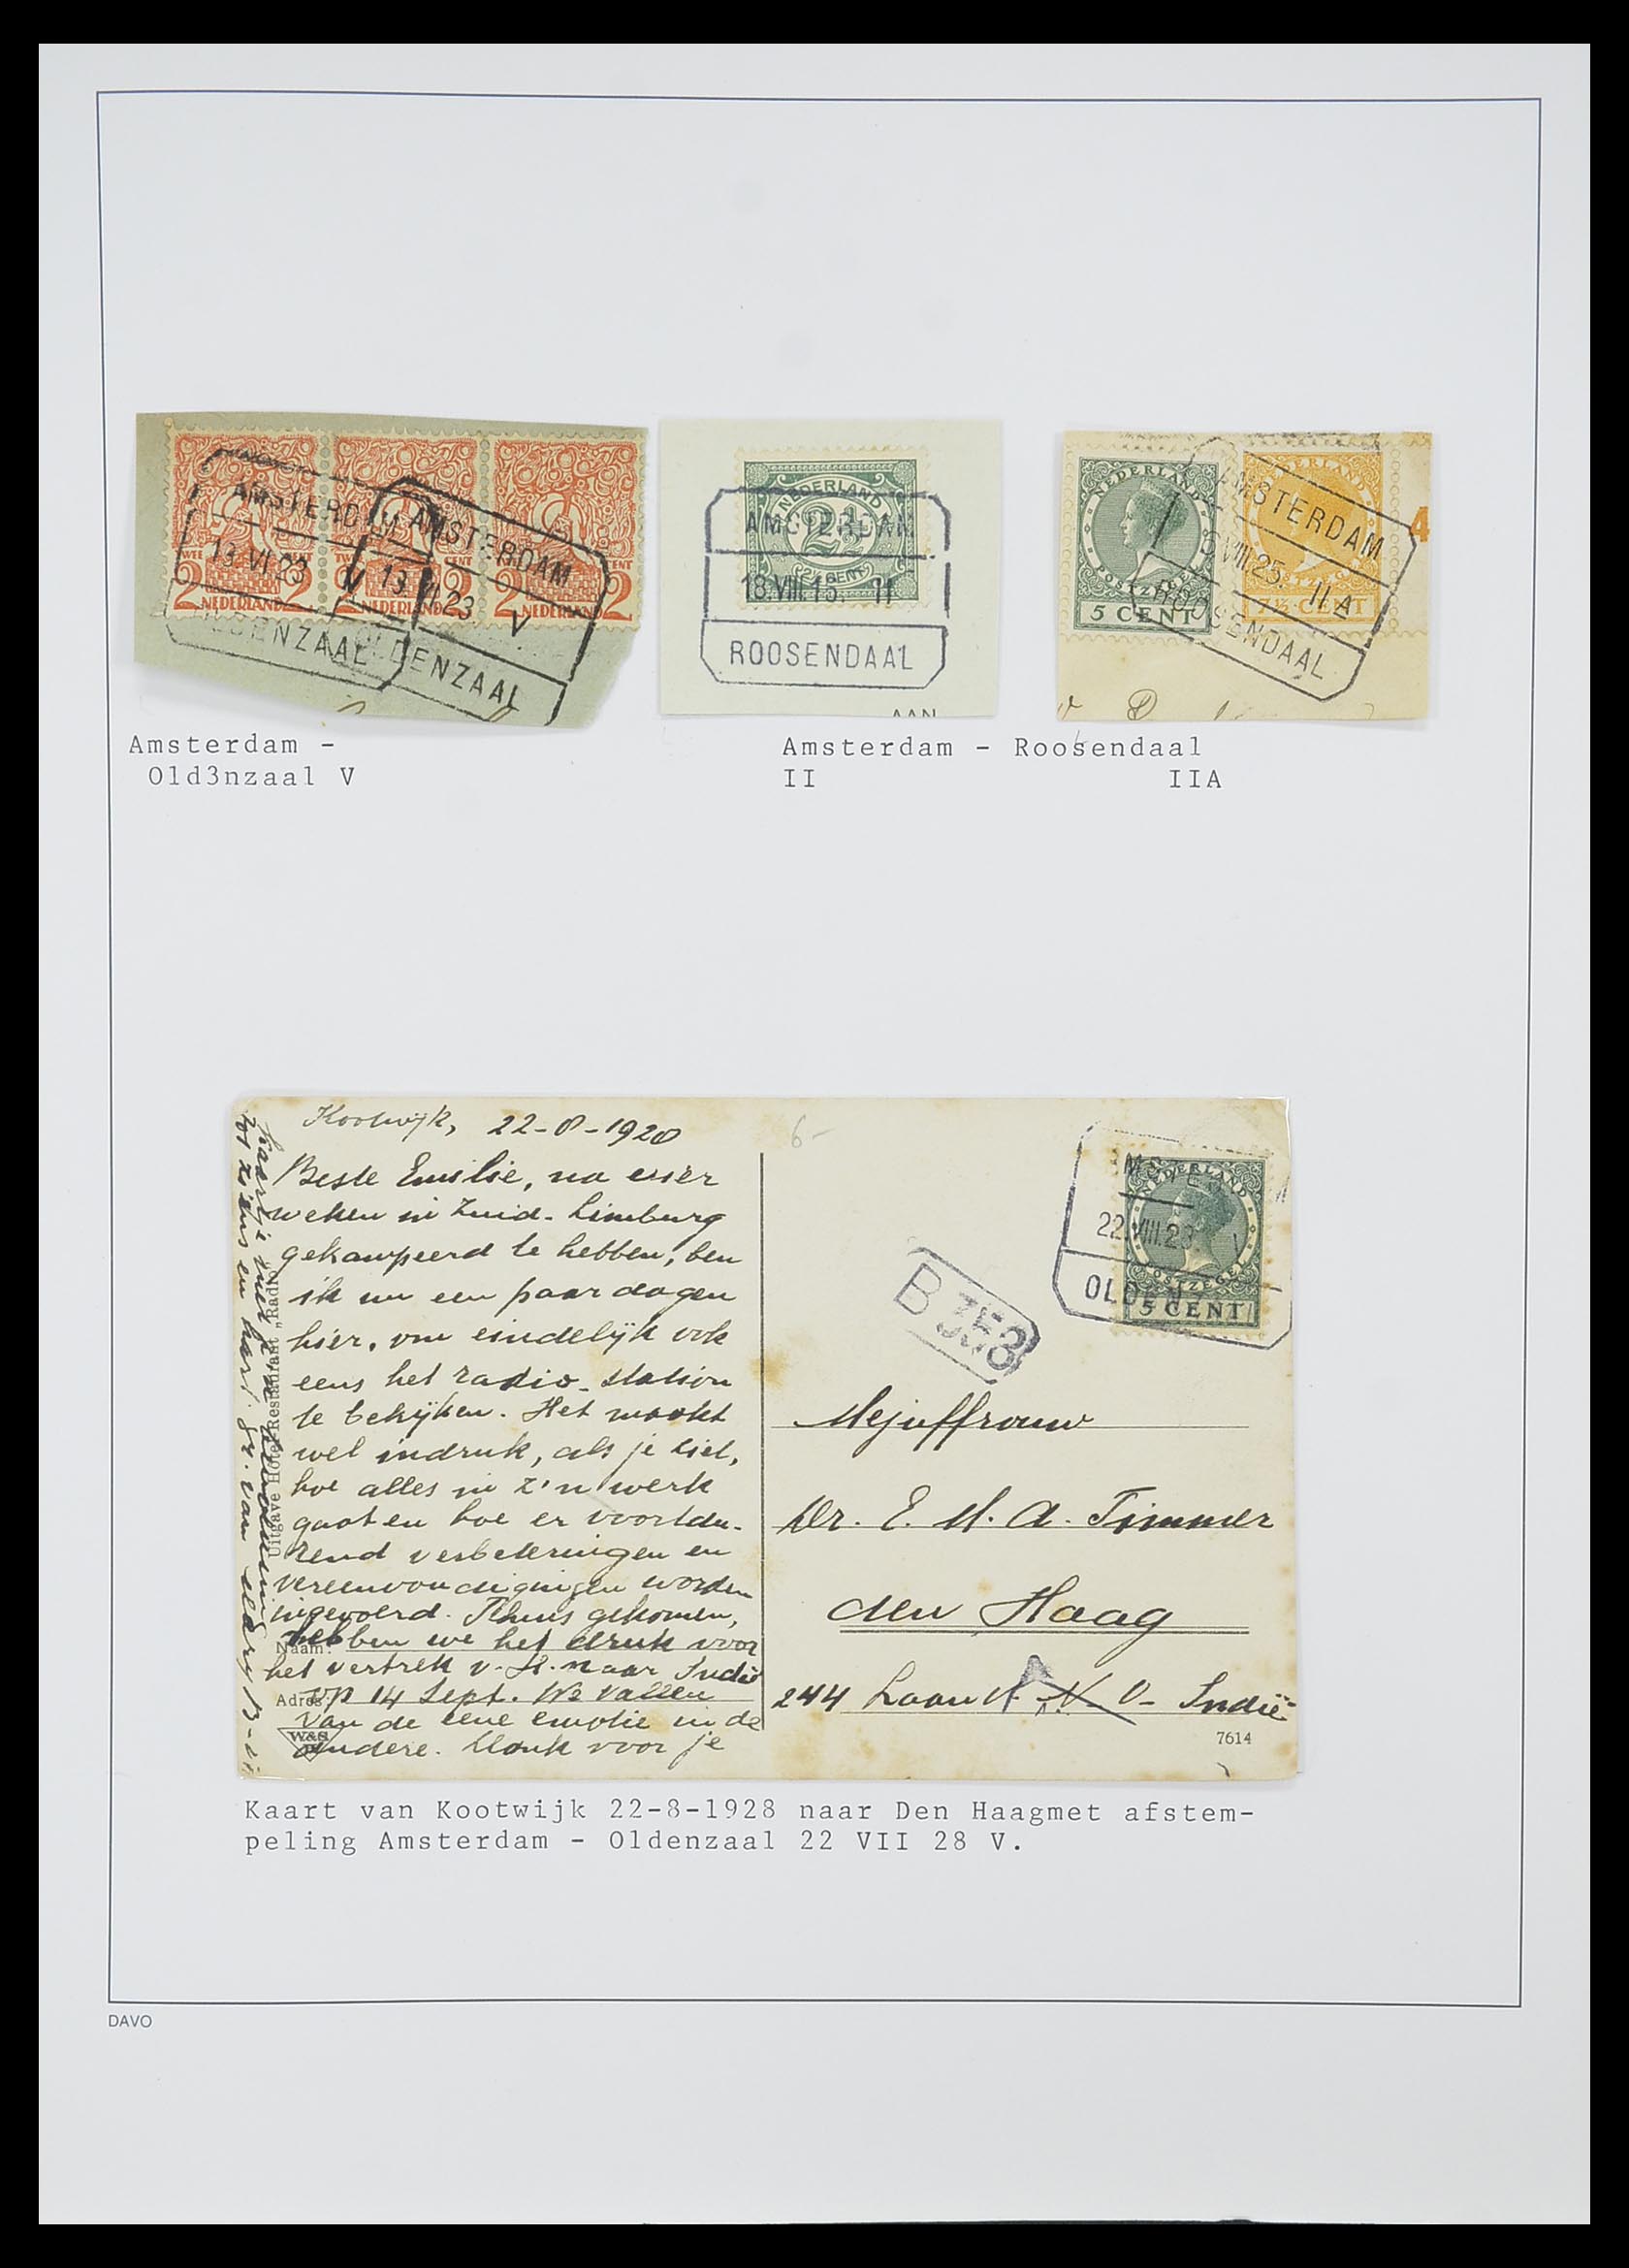 AMSTERDAM
13 VI 23 V
OLDENZAAL
AMSTERDAM
13 VI 23 V
OLDENZAAL
TWEE CENT
2 NEDERLAND 2
2 NEDERLAND 2
2 NEDERLAND 2
NEDERLAND
2½
2½ CENT
AMSTERDAM
18.VIII.15. II
ROOSENDAAL
AAN
NEDERLAND
POSTZEGEL
5 CENT
NEDERLAND
POSTZEGEL
7½ CENT
4
AMSTERDAM
VIII.25. II A
ROOSENDAAL
Amsterdam -
Old3nzaal V
Amsterdam - Roosendaal
II IIA
Kootwijk, 22-8-1928
Beste Emilie, na vier
weken in Zuid-Limburg
gekampeerd te hebben, ben
ik nu een paar dagen
hier, om eindelijk ook
eens het radio-station
te bekijken. Het maakt
wel indruk, als je ziet,
hoe alles in z'n werk
gaat en hoe er voortdu-
rend verbeteringen en
vereenvoudigingen worden
ingevoerd. Thuis gekomen,
hebben we het druk voor
het vertrek v. H. naar Indië
op 14 Sept. We vallen
van de eene emotie in de
andere. Dank voor je
kaartje met
tot ziens en hart. gr. van
Uitgave Hotel-Restaurant „Radio”
Naam:
Adres:
W&S
6-
B 353
NEDERLAND
POSTZEGEL
5 CENT
22.VIII.28 V
OLDENZAAL
Mejuffrouw
Dr. E. M. A. Timmer
den Haag
244 Laan v. N. O- Indië
7614
Kaart van Kootwijk 22-8-1928 naar Den Haagmet afstem-
peling Amsterdam - Oldenzaal 22 VII 28 V.
DAVO